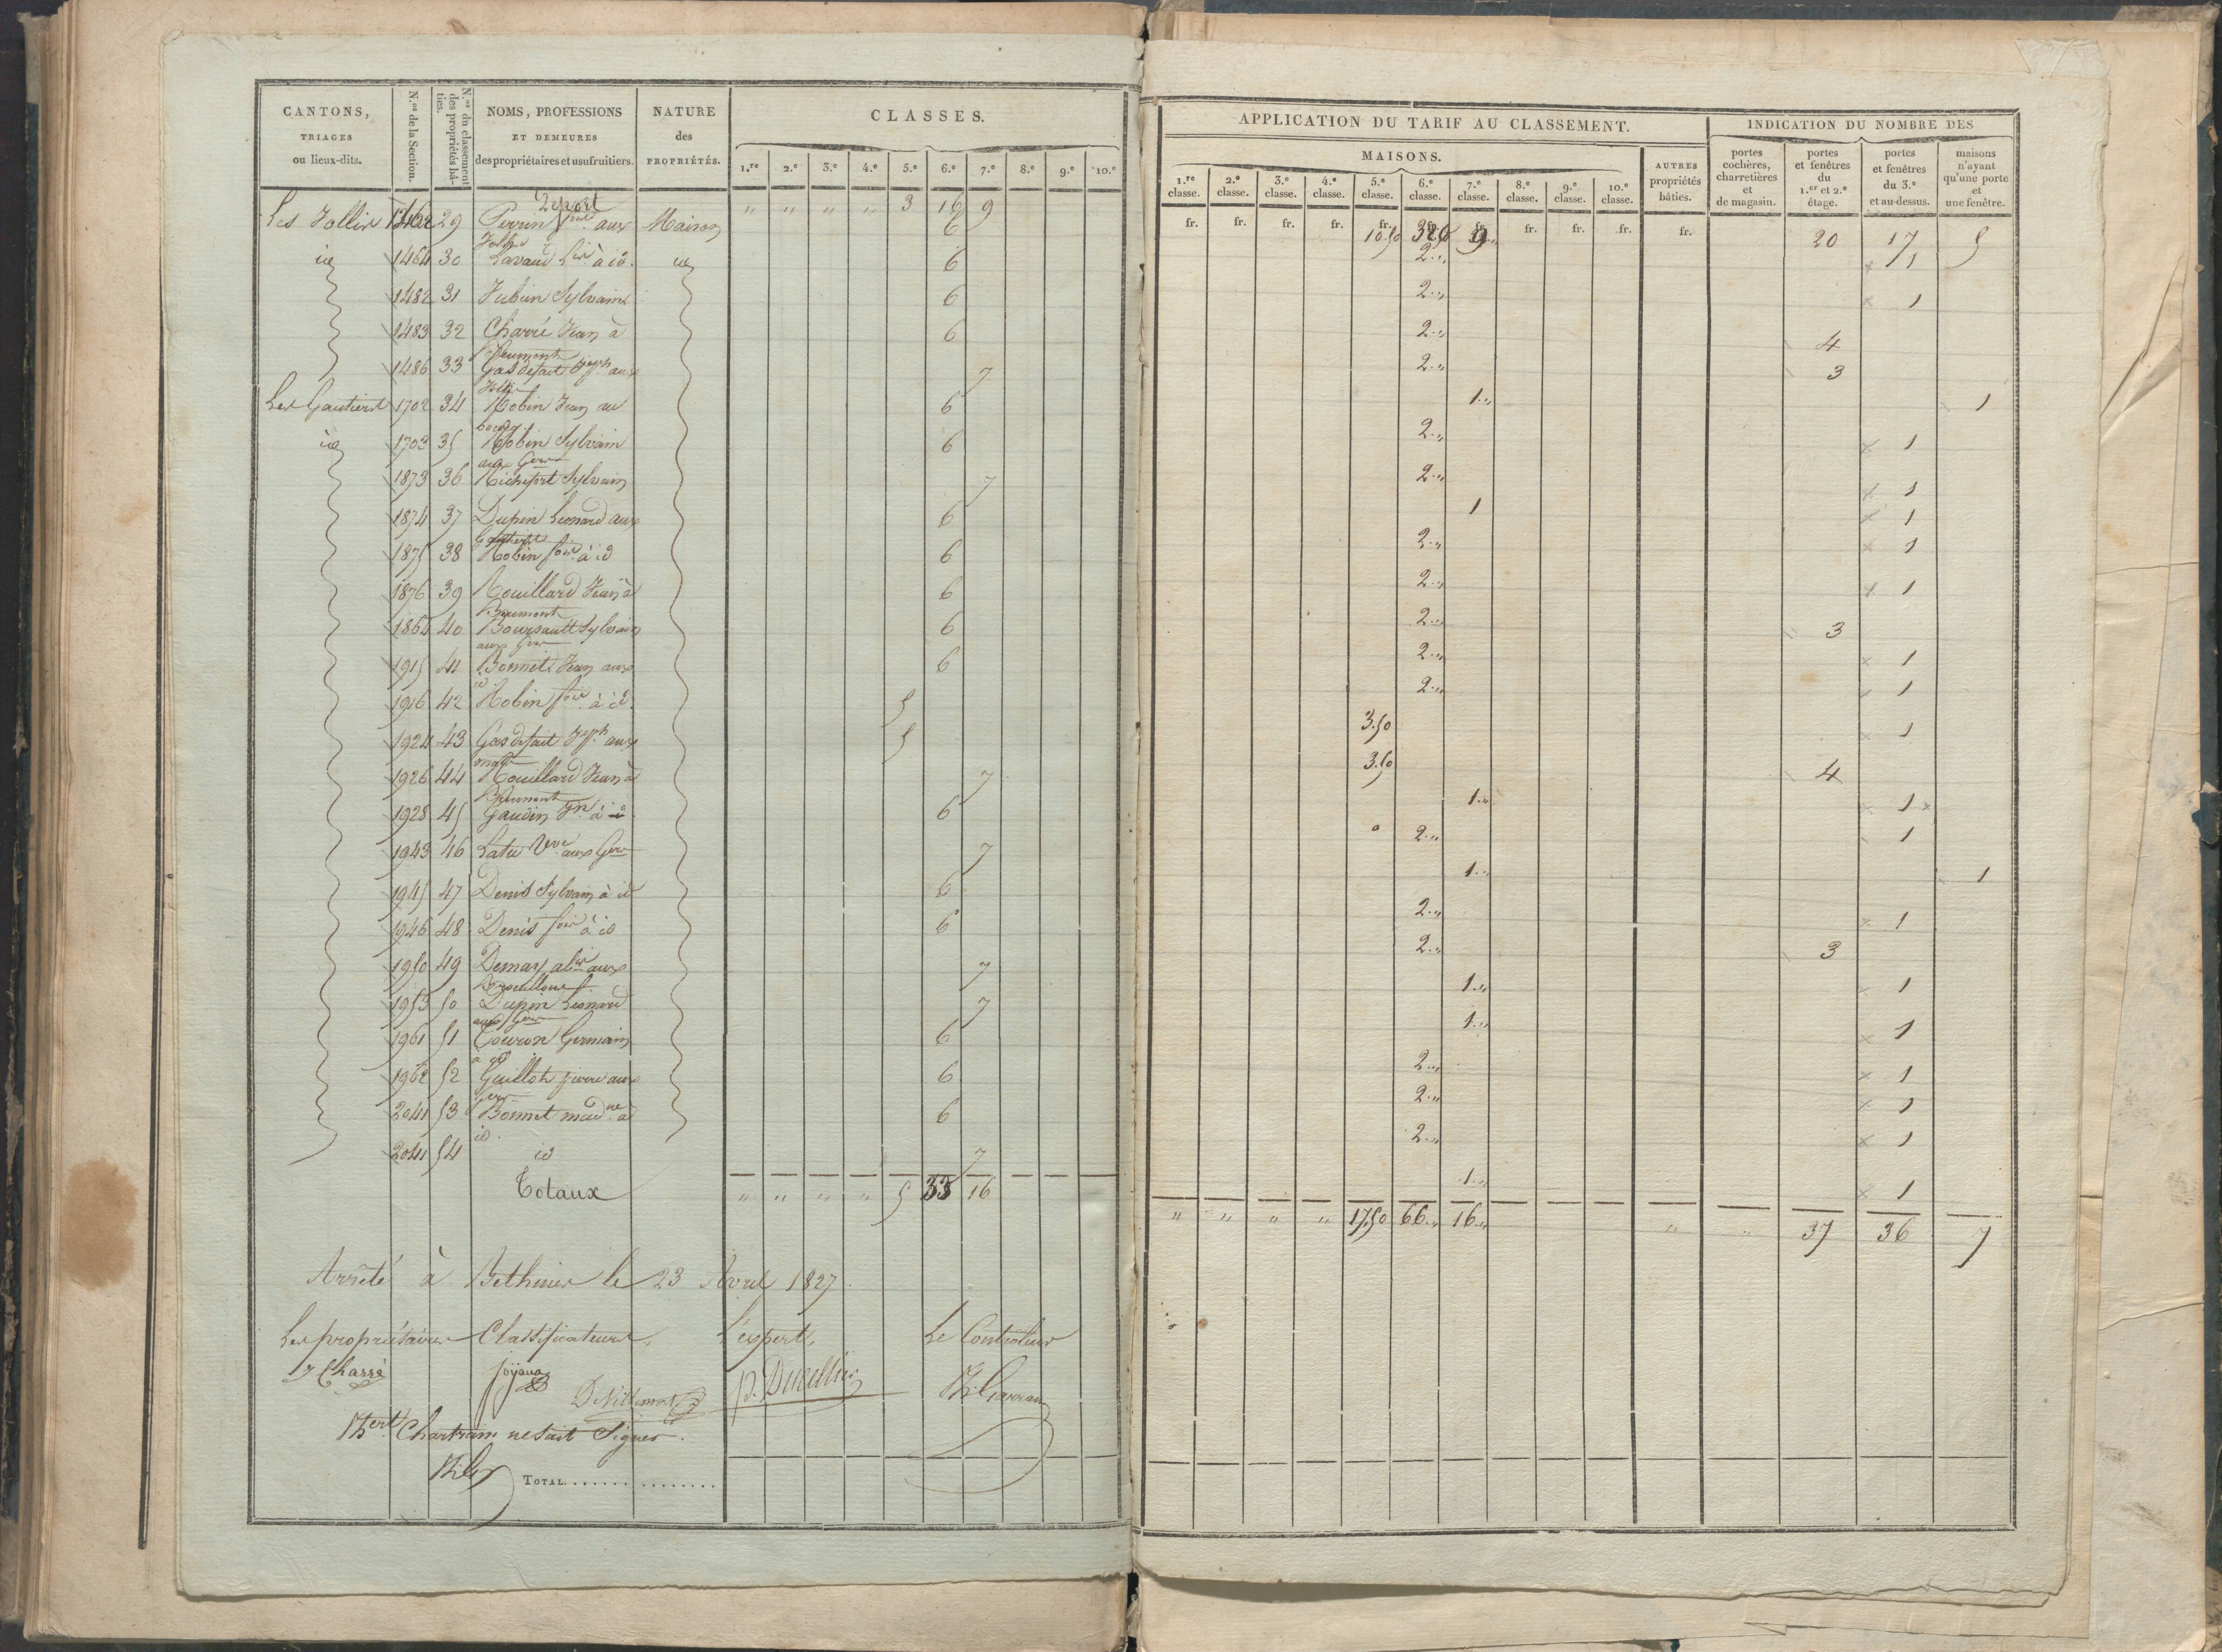 CANTONS, TRIAGES ou lieux-dits. N.os de la Section. N.os du classement des propriétés bâties. NOMS, PROFESSIONS ET DEMEURES des propriétaires et usufruitiers. NATURE des PROPRIÉTÉS. CLASSES.
1.re 2.e 3.e 4.e 5.e 6.e 7.e 8.e 9.e 10.e
Report " " " " 3 16 9
29 Perrin aux Maison 6
id 1464 30 Lavaud à id. id 6
1482 31 Jubin Sylvain 6
1483 32 Charré Jean à 6
1486 33 Gasdefait Jph aux 7
Les Gautiers 1702 34 Robin Jean au 6
bourg
id 1703 35 Robin Sylvain 6
1873 36 Richefort Sylvain 7
1874 37 Dupin Léonard aux 6
Gautiers
1875 38 Robin à id 6
1876 39 Rouillard Jean à 6
Beaumont
1864 40 Boursault Sylvain 6
1915 41 Bonnet Jean aux 6
id
1916 42 Robin à id. 5
1924 43 Gasdefait Jph aux 5
1926 44 Rouillard Jean à 7
Beaumont
1928 45 Gaudin Jn à id 6
1943 46 Latu Vve aux 7
1945 47 Denis Sylvain à id 6
1946 48 Denis à id 6
1950 49 Demay aux 7
1953 50 Dupin Léonard 7
1961 51 Germain 6
à id
1962 52 Guillot pierre aux 6
2041 53 Bonnet à 6
id.
2041 54 id 7
Totaux " " " " 5 33 16
Arrêté à le 23 Avril 1827.
Les propriétaires Classificateurs, L'expert, Le Contrôleur
J Charré Joyaux
Chartrain ne sait Signer.
TOTAL
APPLICATION DU TARIF AU CLASSEMENT. INDICATION DU NOMBRE DES
MAISONS. AUTRES propriétés bâties. portes cochères, charretières et de magasin. portes et fenêtres du 1.er et 2.e étage. portes et fenêtres du 3.e et au-dessus. maisons n'ayant qu'une porte et une fenêtre.
1.re classe. 2.e classe. 3.e classe. 4.e classe. 5.e classe. 6.e classe. 7.e classe. 8.e classe. 9.e classe. 10.e classe.
fr. fr. fr. fr. fr. fr. fr. fr. fr. fr. fr.
10.50 9 20 17 5
2.." × 1
2.." × 1
2.." 4
2.." 3
1.." 1
2.." × 1
2.." × 1
1 × 1
2.." × 1
2.." × 1
2.." 3
2.." × 1
2.." × 1
3.50 × 1
3.50 4
1.." × 1 ×
2.." × 1
1.." 1
2.." × 1
2.." 3
1.." × 1
1.." × 1
2.." × 1
2.." × 1
2.." × 1
1.." × 1
" " " " 17.50 66.." 16.." " " 37 36 7